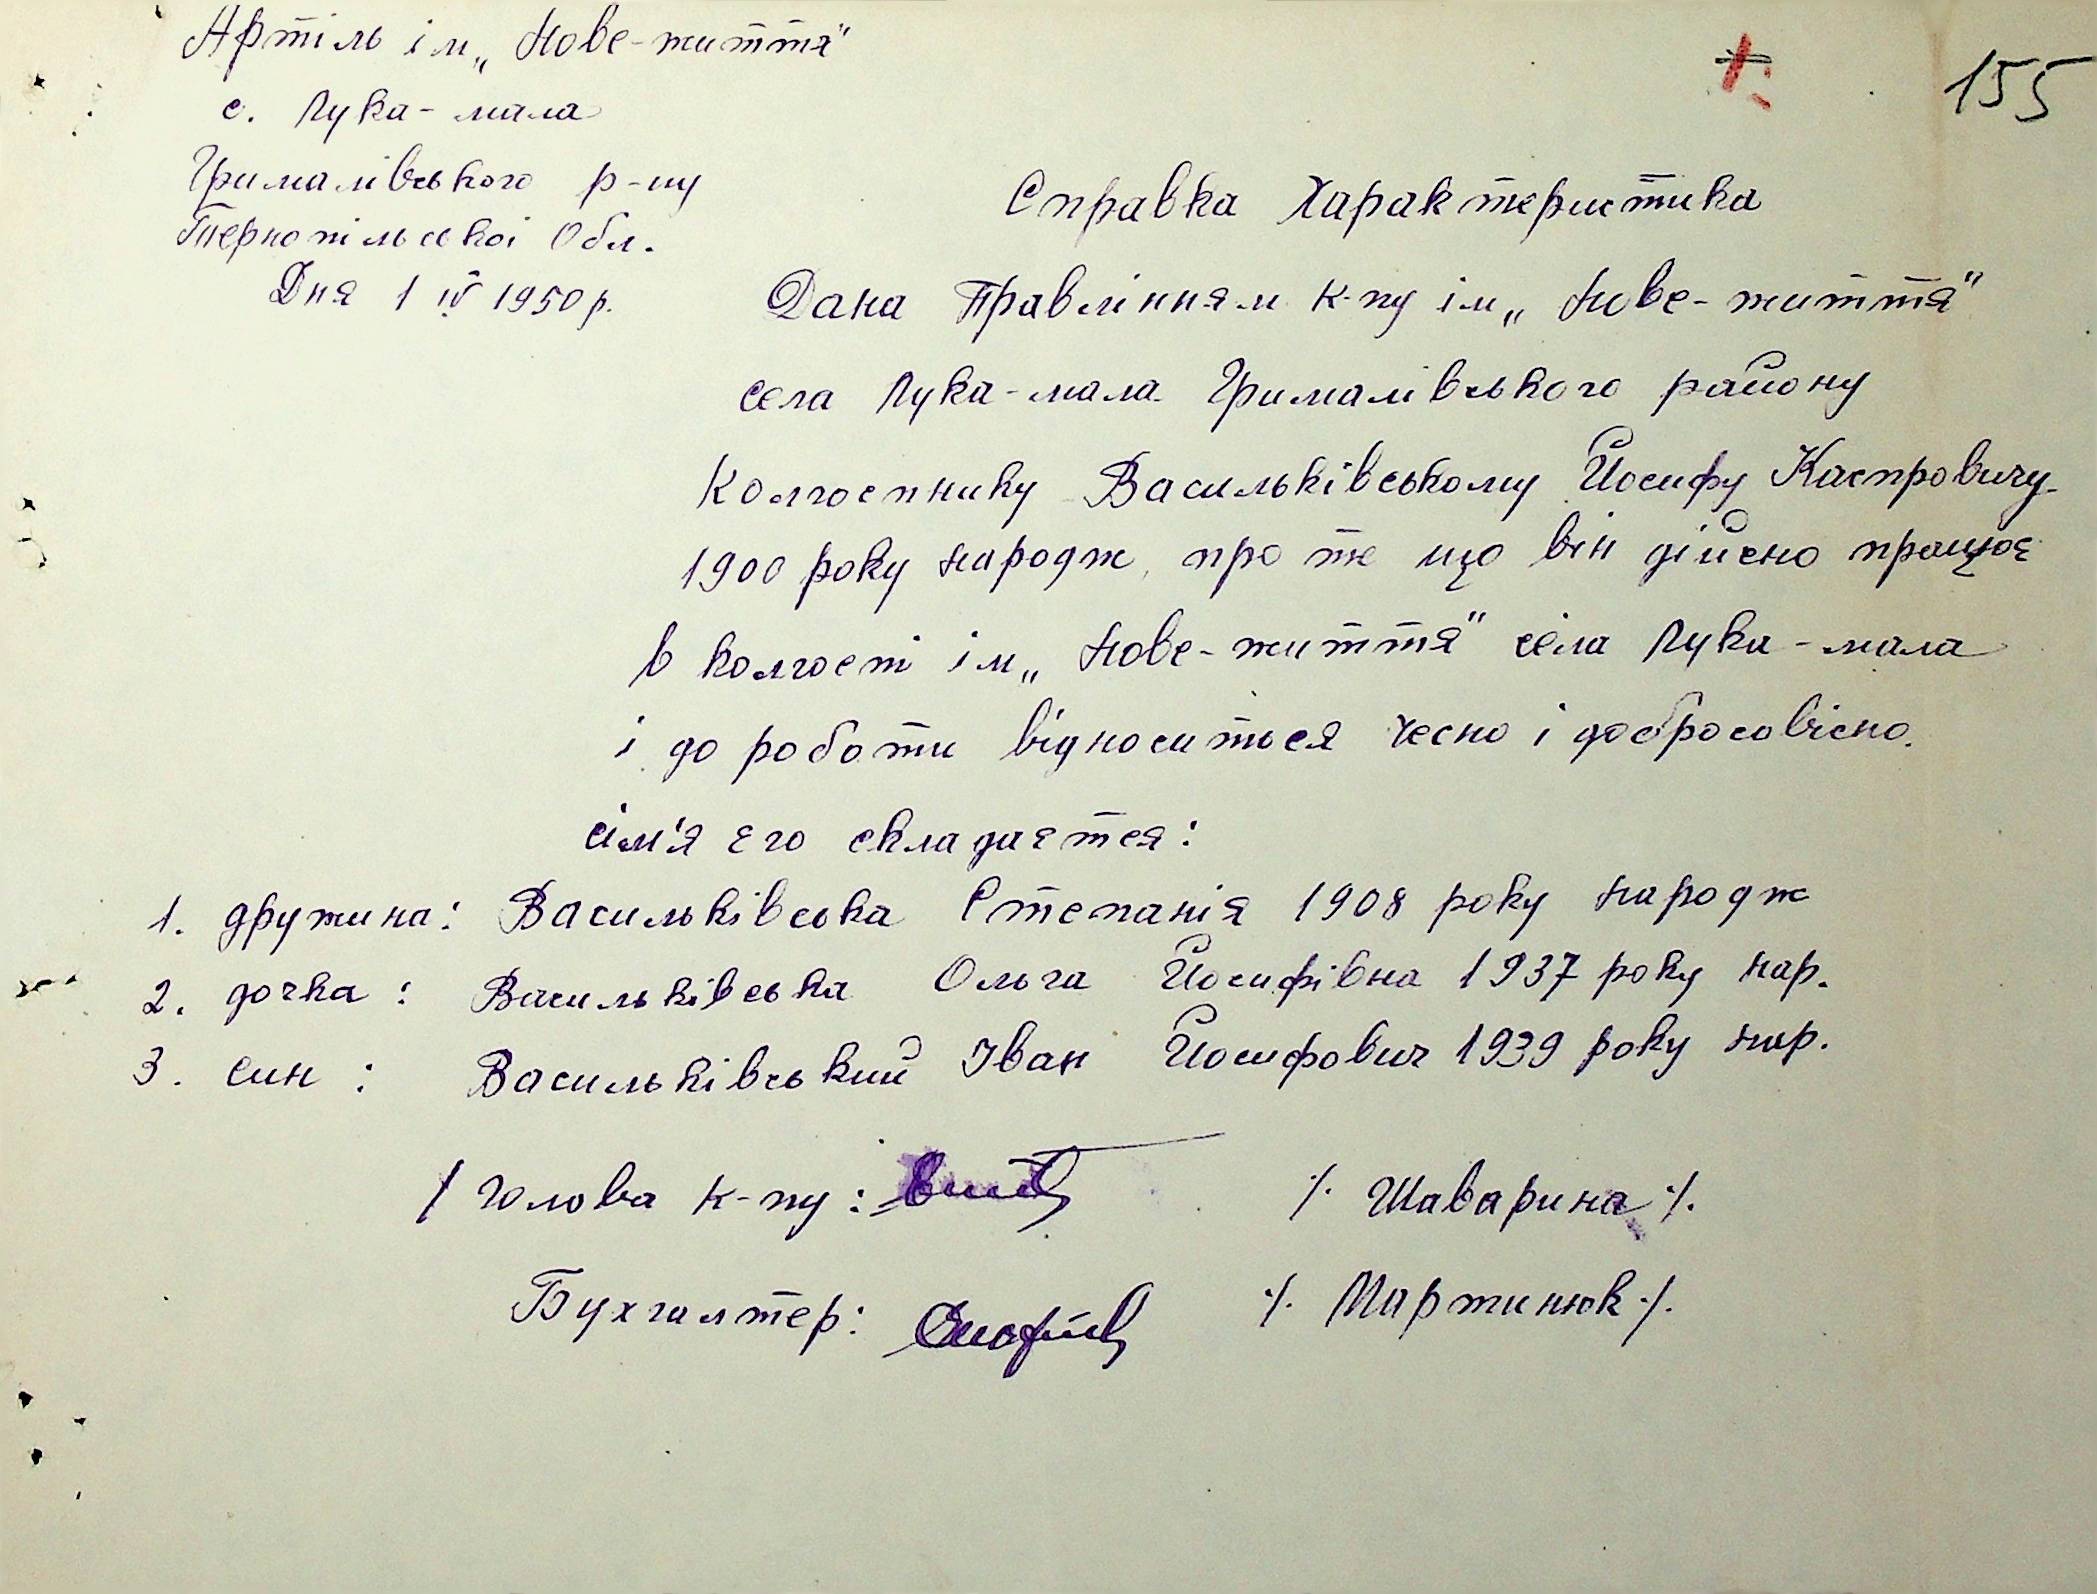 Артіль ім „Нове-життя"
155
с. Лука-мала
Грималівського р-ну
Справка Характеристика
Тернопільської Обл.
Дня 1 IV 1950 р.
Дана Правлінням к-пу ім „Нове-життя"
села Лука-мала Грималівського району
Колгоспнику Васильківському Йосифу Каспровичу
1900 року народж, про те що він дійсно працює
в колгоспі ім „Нове-життя" села Лука-мала
і до роботи відноситься чесно і добросовісно.
сім'я єго складаєтся:
1. дружина: Васильківська Степанія 1908 року народж
2. дочка: Васильківська Ольга Йосифівна 1937 року нар.
3. син: Васильківський Іван Йосифович 1939 року нар.
/ Голова к-пу: ./. Шаварина ./.
Бухгалтер: ./. Мартинюк ./.